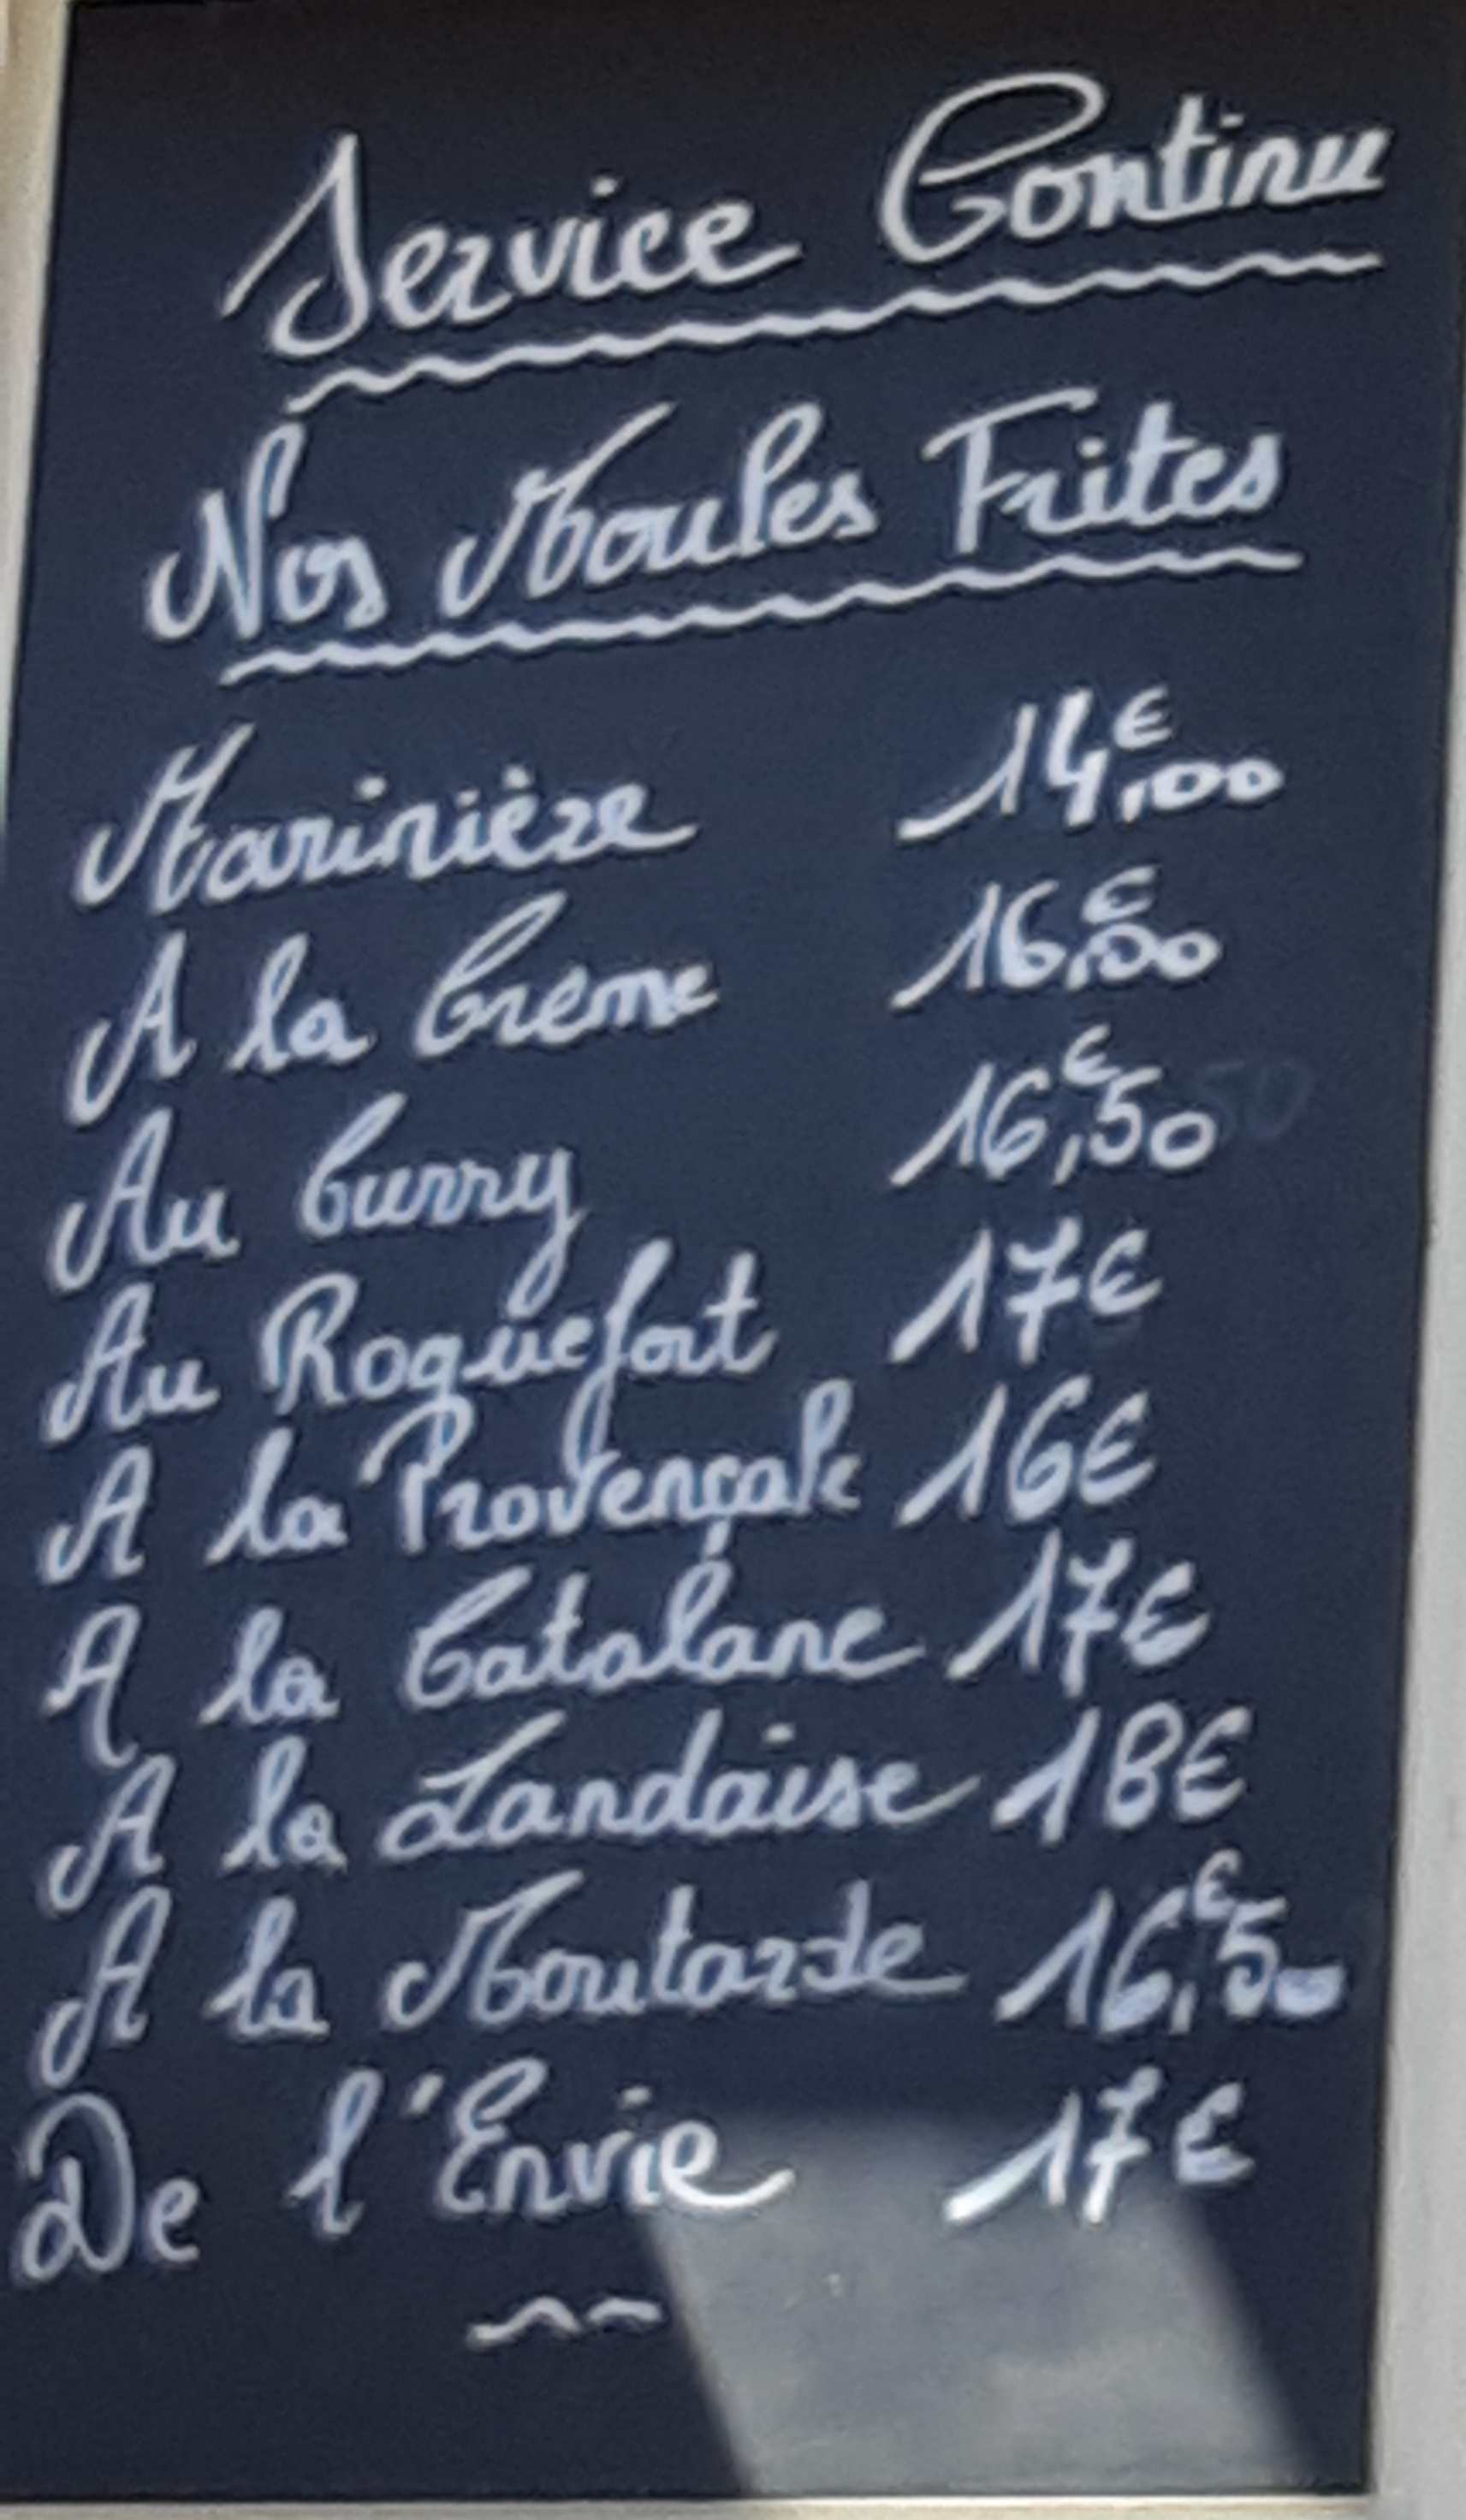 Service Continu
Nos Moules Frites
Marinière 14,00€
A la Creme 16,00€
Au Curry 16,50€
Au Roquefort 17€
A la Provençale 16€
A la Catalane 17€
A la Landaise 18€
A la Moutarde 16,50€
De l'Envie 17€